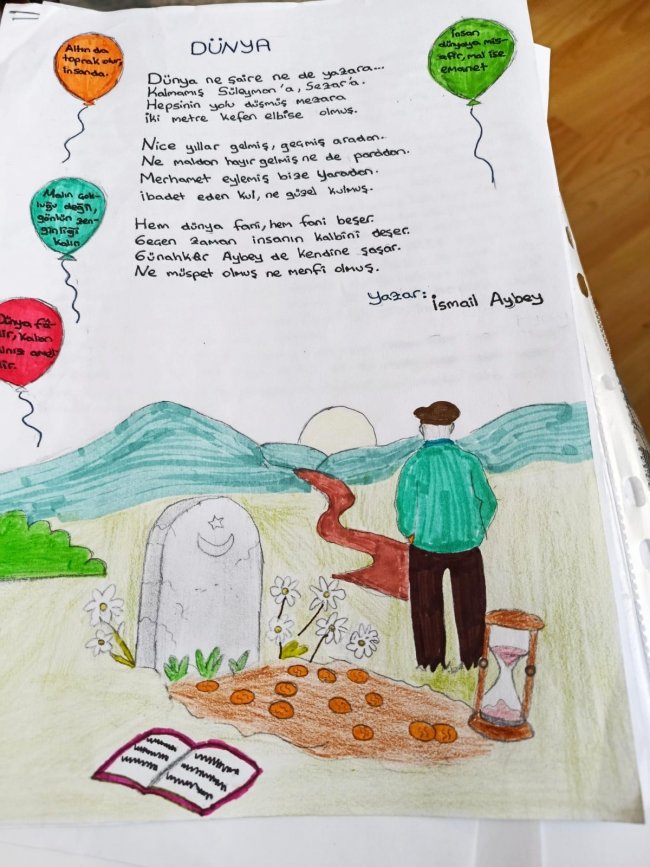 DÜNYA
Dünya ne şaire ne de yazara...
Kalmamış Süleyman'a, Sezar'a.
Hepsinin yolu düşmüş mezara
İki metre kefen elbise olmuş.
Nice yıllar gelmiş, geçmiş aradan.
Ne maldan hayır gelmiş ne de paradan.
Merhamet eylemiş bize Yaradan.
ibadet eden kul, ne güzel kulmuş.
Hem dünya fani, hem fani beşer.
Geçen zaman insanın kalbini deşer.
Günahkâr Aybey de kendine şaşar.
Ne müspet olmuş ne menfi olmuş.
Yazar: İsmail Aybey
Altın da
toprak olur,
insanda.
İnsan
dünyaya mis-
afir, mal ise
emanet
Malın çok-
luğu değil,
gönlün zen-
ginliği
kalır.
Dünya fâ-
dir, kalan
dir.